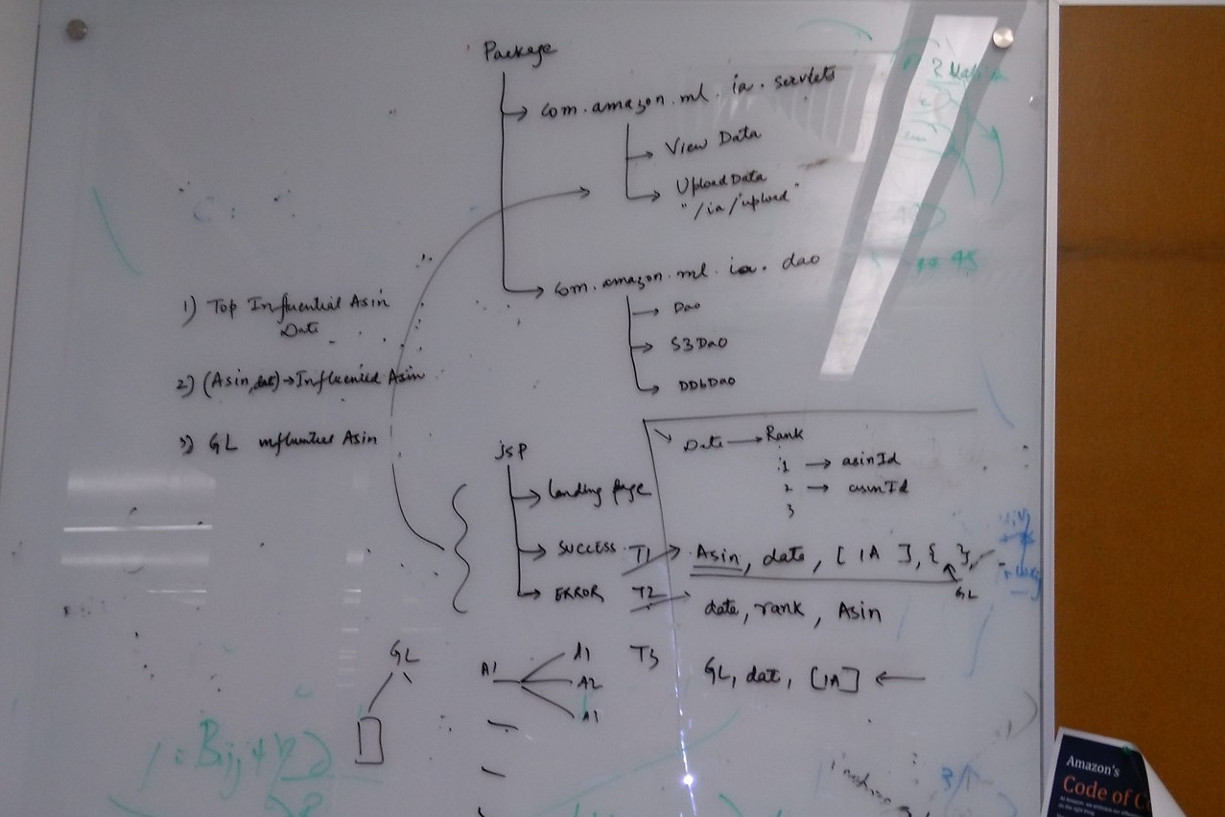 Package
com.amazon.ml.ia.servlets
View Data
Upload Data
"/ia/upload"
com.amazon.ml.ia.dao
Dao
S3DaO
DDbDao
1) Top Influential Asin
Date
2) (Asin, dat) → Influenced Asin
3) GL influential Asin
jsp
landing page
SUCCESS
ERROR
Date → Rank
1 → asinId
2 → asinId
3
T1 → Asin, date, [IA], { },
GL
T2 → date, rank, Asin
T3 GL, dat, [IA] ←
GL
A1
A1
A2
A3
45
Amazon's
Code of C